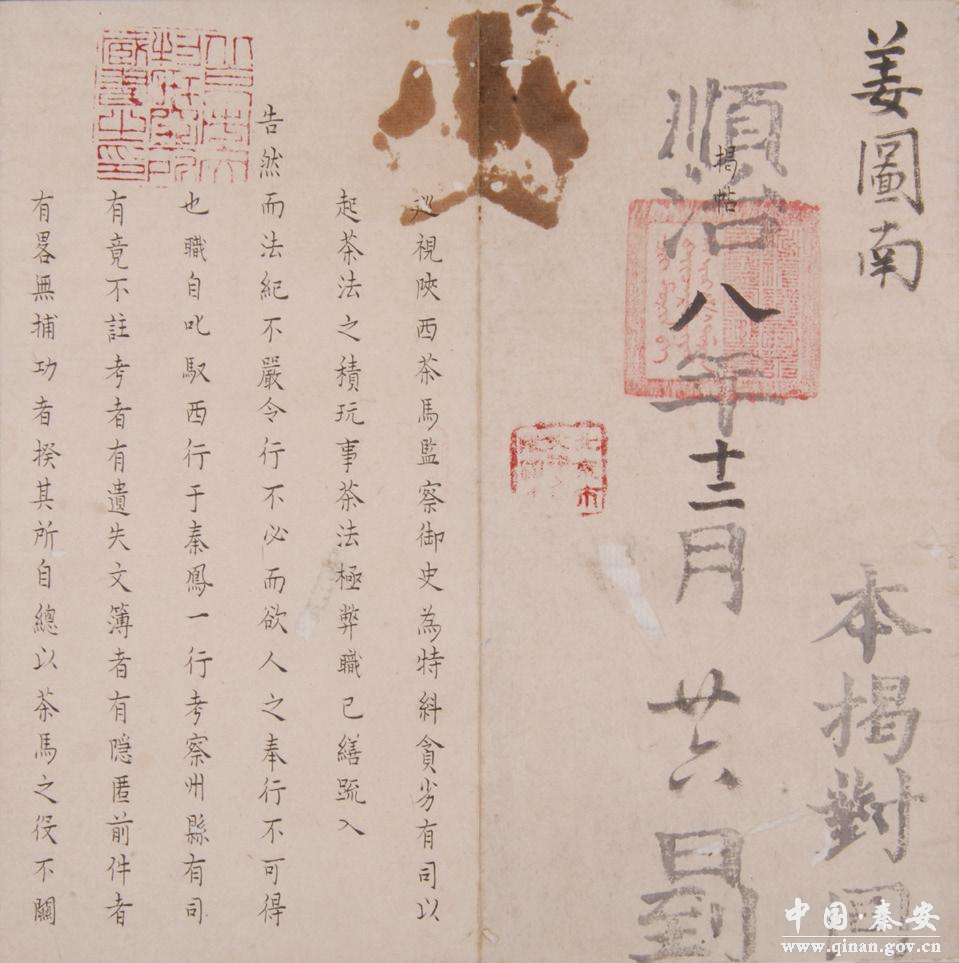 姜圖南
本揭對同
揭帖
順治八年十二月廿六日到
巡視陝西茶馬監察御史為特糾貪劣有司以
起茶法之積玩事茶法極弊職已繕疏入
告然而法紀不嚴令行不必而欲人之奉行不可得
也職自叱馭西行于秦鳳一行考察州縣有司
有竟不註考者有遺失文簿者有隠匿前件者
有畧無捕功者揆其所自總以茶馬之役不關
中国·秦安
www.qinan.gov.cn